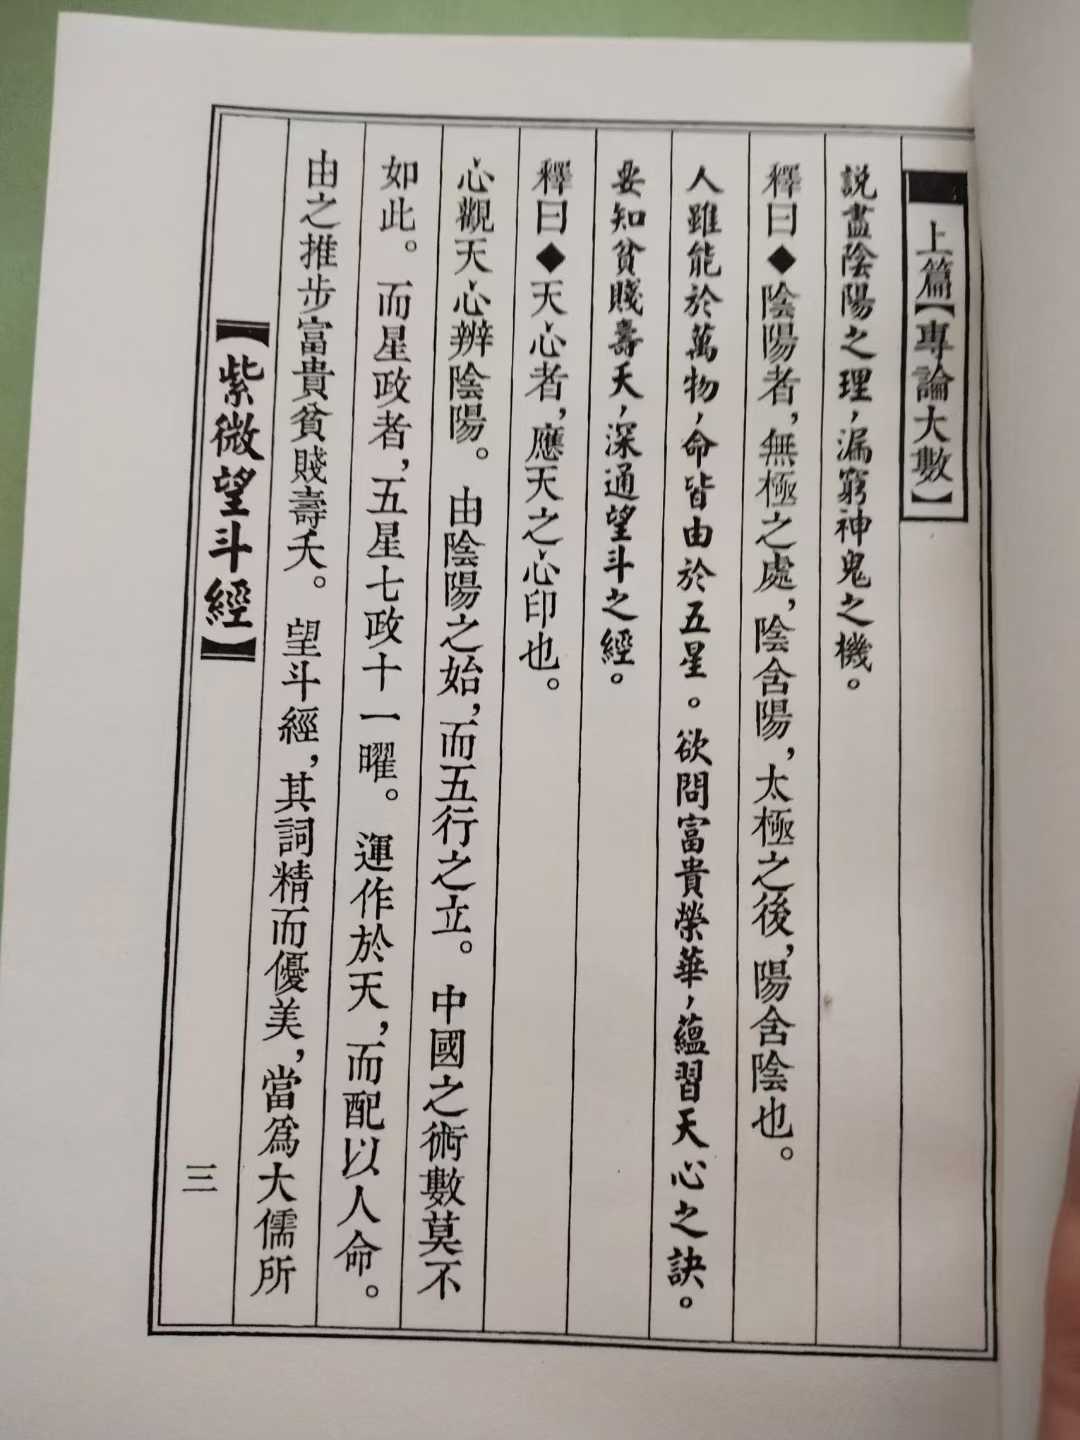 上篇【專論大數】
説盡陰陽之理，漏窮神鬼之機。
釋曰◆陰陽者，無極之處，陰含陽，太極之後，陽含陰也。
人雖能於萬物，命皆由於五星。欲問富貴榮華，蘊習天心之訣。
要知貧賤壽夭，深通望斗之經。
釋曰◆天心者，應天之心印也。
心觀天心辨陰陽。由陰陽之始，而五行之立。中國之術數莫不
如此。而星政者，五星七政十一曜。運作於天，而配以人命。
由之推步富貴貧賤壽夭。望斗經，其詞精而優美，當爲大儒所
【紫微望斗經】
三